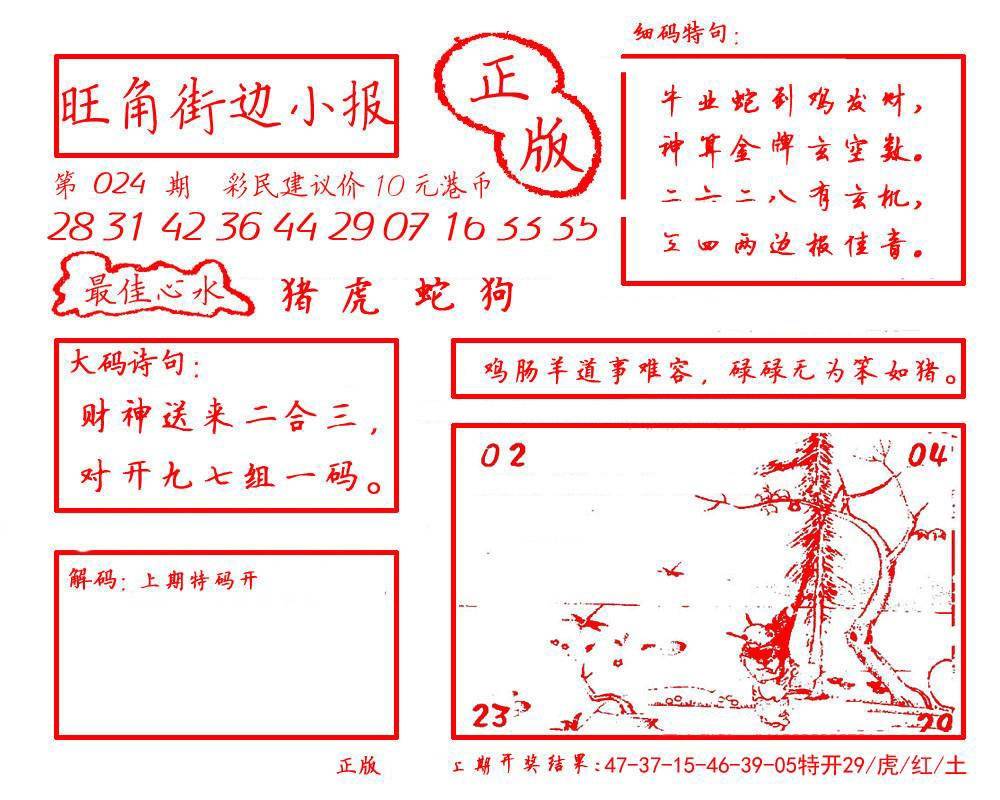 细码特句：
正版
旺角街边小报
第 024 期 彩民建议价10元港币
28 31 42 36 44 29 07 16 33 35
牛业蛇到鸡发财，
神算金牌玄空数。
二六二八有玄机，
四两边报佳音。
最佳心水 猪虎蛇狗
大码诗句：
财神送来二合三，
对开九七组一码。
鸡肠羊道事难容，碌碌无为笨如猪。
02 04
23 20
解码：上期特码开
正版
上期开奖结果：47-37-15-46-39-05特开29/虎/红/土